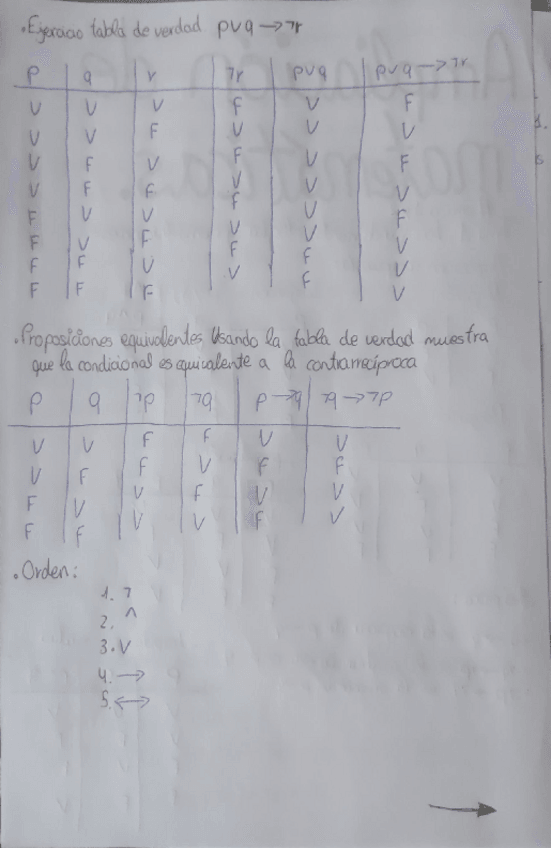 .Ejercicio tabla de verdad p∨q→¬r
p q r ¬r p∨q p∨q→¬r
V V V F V F
V V F V V V
V F V F V F
V F F V V V
F V V F V F
F V F V V V
F F V F F V
F F F V F V
.Proposiciones equivalentes Usando la tabla de verdad muestra
que la condicional es equivalente a la contrarrecíproca
p q ¬p ¬q p→q ¬q→¬p
V V F F V V
V F F V F F
F V V F V V
F F V V F V
.Orden:
1. ¬
2. ^
3. V
4. →
5. ↔